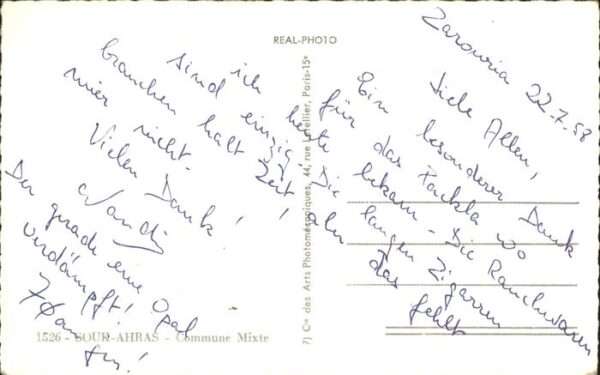 REAL-PHOTO
Zarouria 22.7.58
Liebe Allen,
Ein besonderer Dank
für das Packtla wo
ich heute bekam - Die Rauchwaren
sind einzig! Die langen Zigarren
brauchen halt Zeit, aber das fehlt
mier nicht.
Vielen Dank!
Der gerade eine Opal
verdämpft!
7) Cie des Arts Photomécaniques, 44, rue Letellier, Paris-15e
1526 - SOUK-AHRAS - Commune Mixte